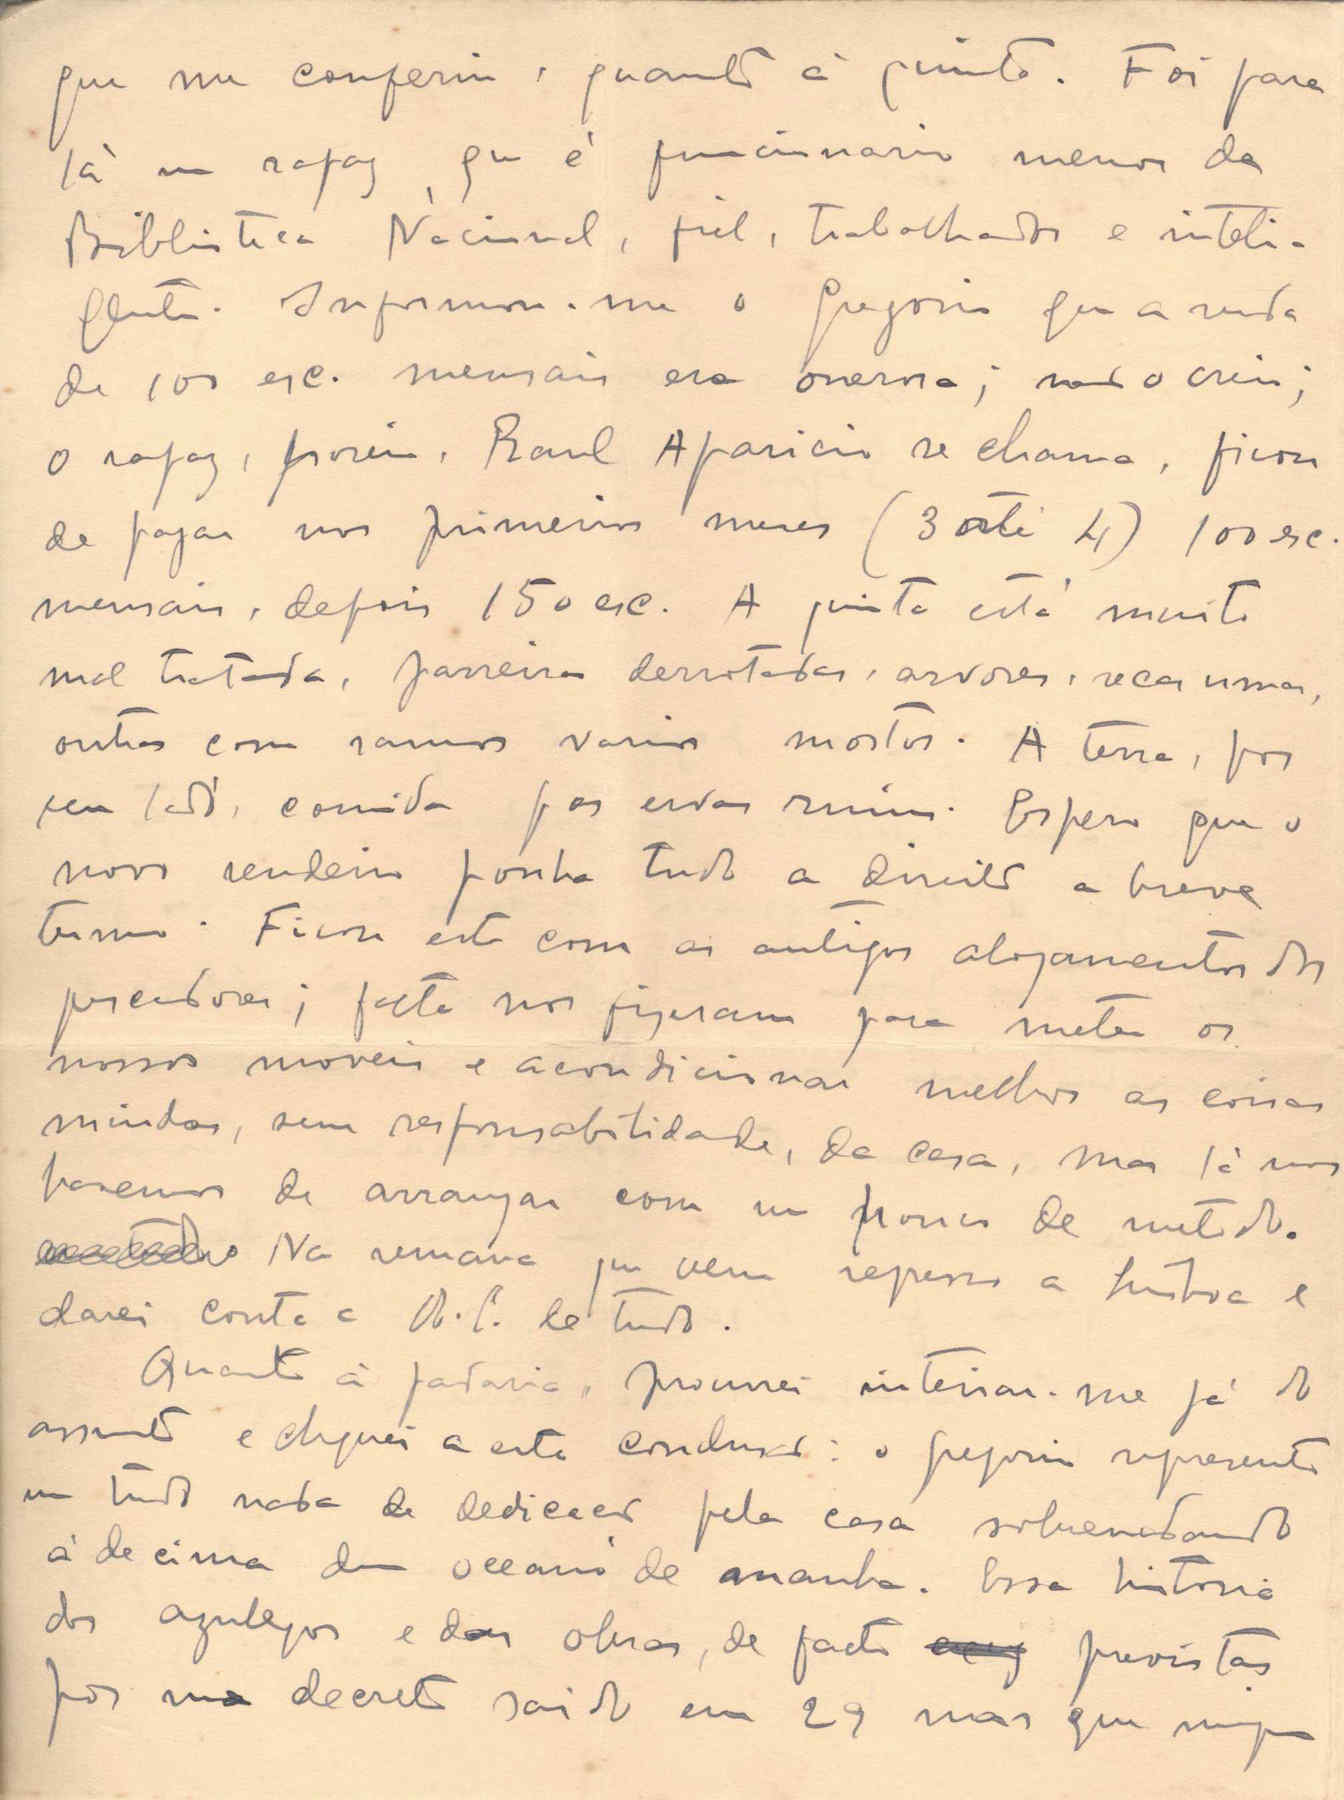 que me conferiu, quanto à quinta. Foi para
lá um rapaz, que é funcionario menor da
Biblioteca Nacional, fiel, trabalhador e inteli-
gente. Informou-me o Gregorio que a renda
de 100 esc. mensais era onerosa; não o creio;
o rapaz, porém, Raul Aparicio se chama, ficou
de pagar nos primeiros meses (3 até 4) 100 esc.
mensais, depois 150 esc. A quinta está muito
mal tratada, parreiras derrotadas, arvores, secas umas,
outras com ramos varios mortos. A terra, por
seu lado, comida por ervas ruins. Espero que o
novo rendeiro ponha tudo a direito a breve
termo. Ficou este com os antigos alojamentos dos
; falta nos fizeram para meter os
nossos moveis e acondicionar melhor as coisas
miudas, sem responsabilidade, da casa, mas lá nos
havemos de arranjar com um pouco de metodo.
Na semana que vem regresso a Lisboa e
darei conta a V. E. de tudo.
Quanto à padaria, procurei inteirar-me já do
assunto e cheguei a esta conclusão: o Gregorio representa
em tudo nada de dedicação pela casa sobrenadando
à de cima dum oceano de manha. Essa historia
dos azulejos e das obras, de facto previstas
por um decreto saido em 29 mas que